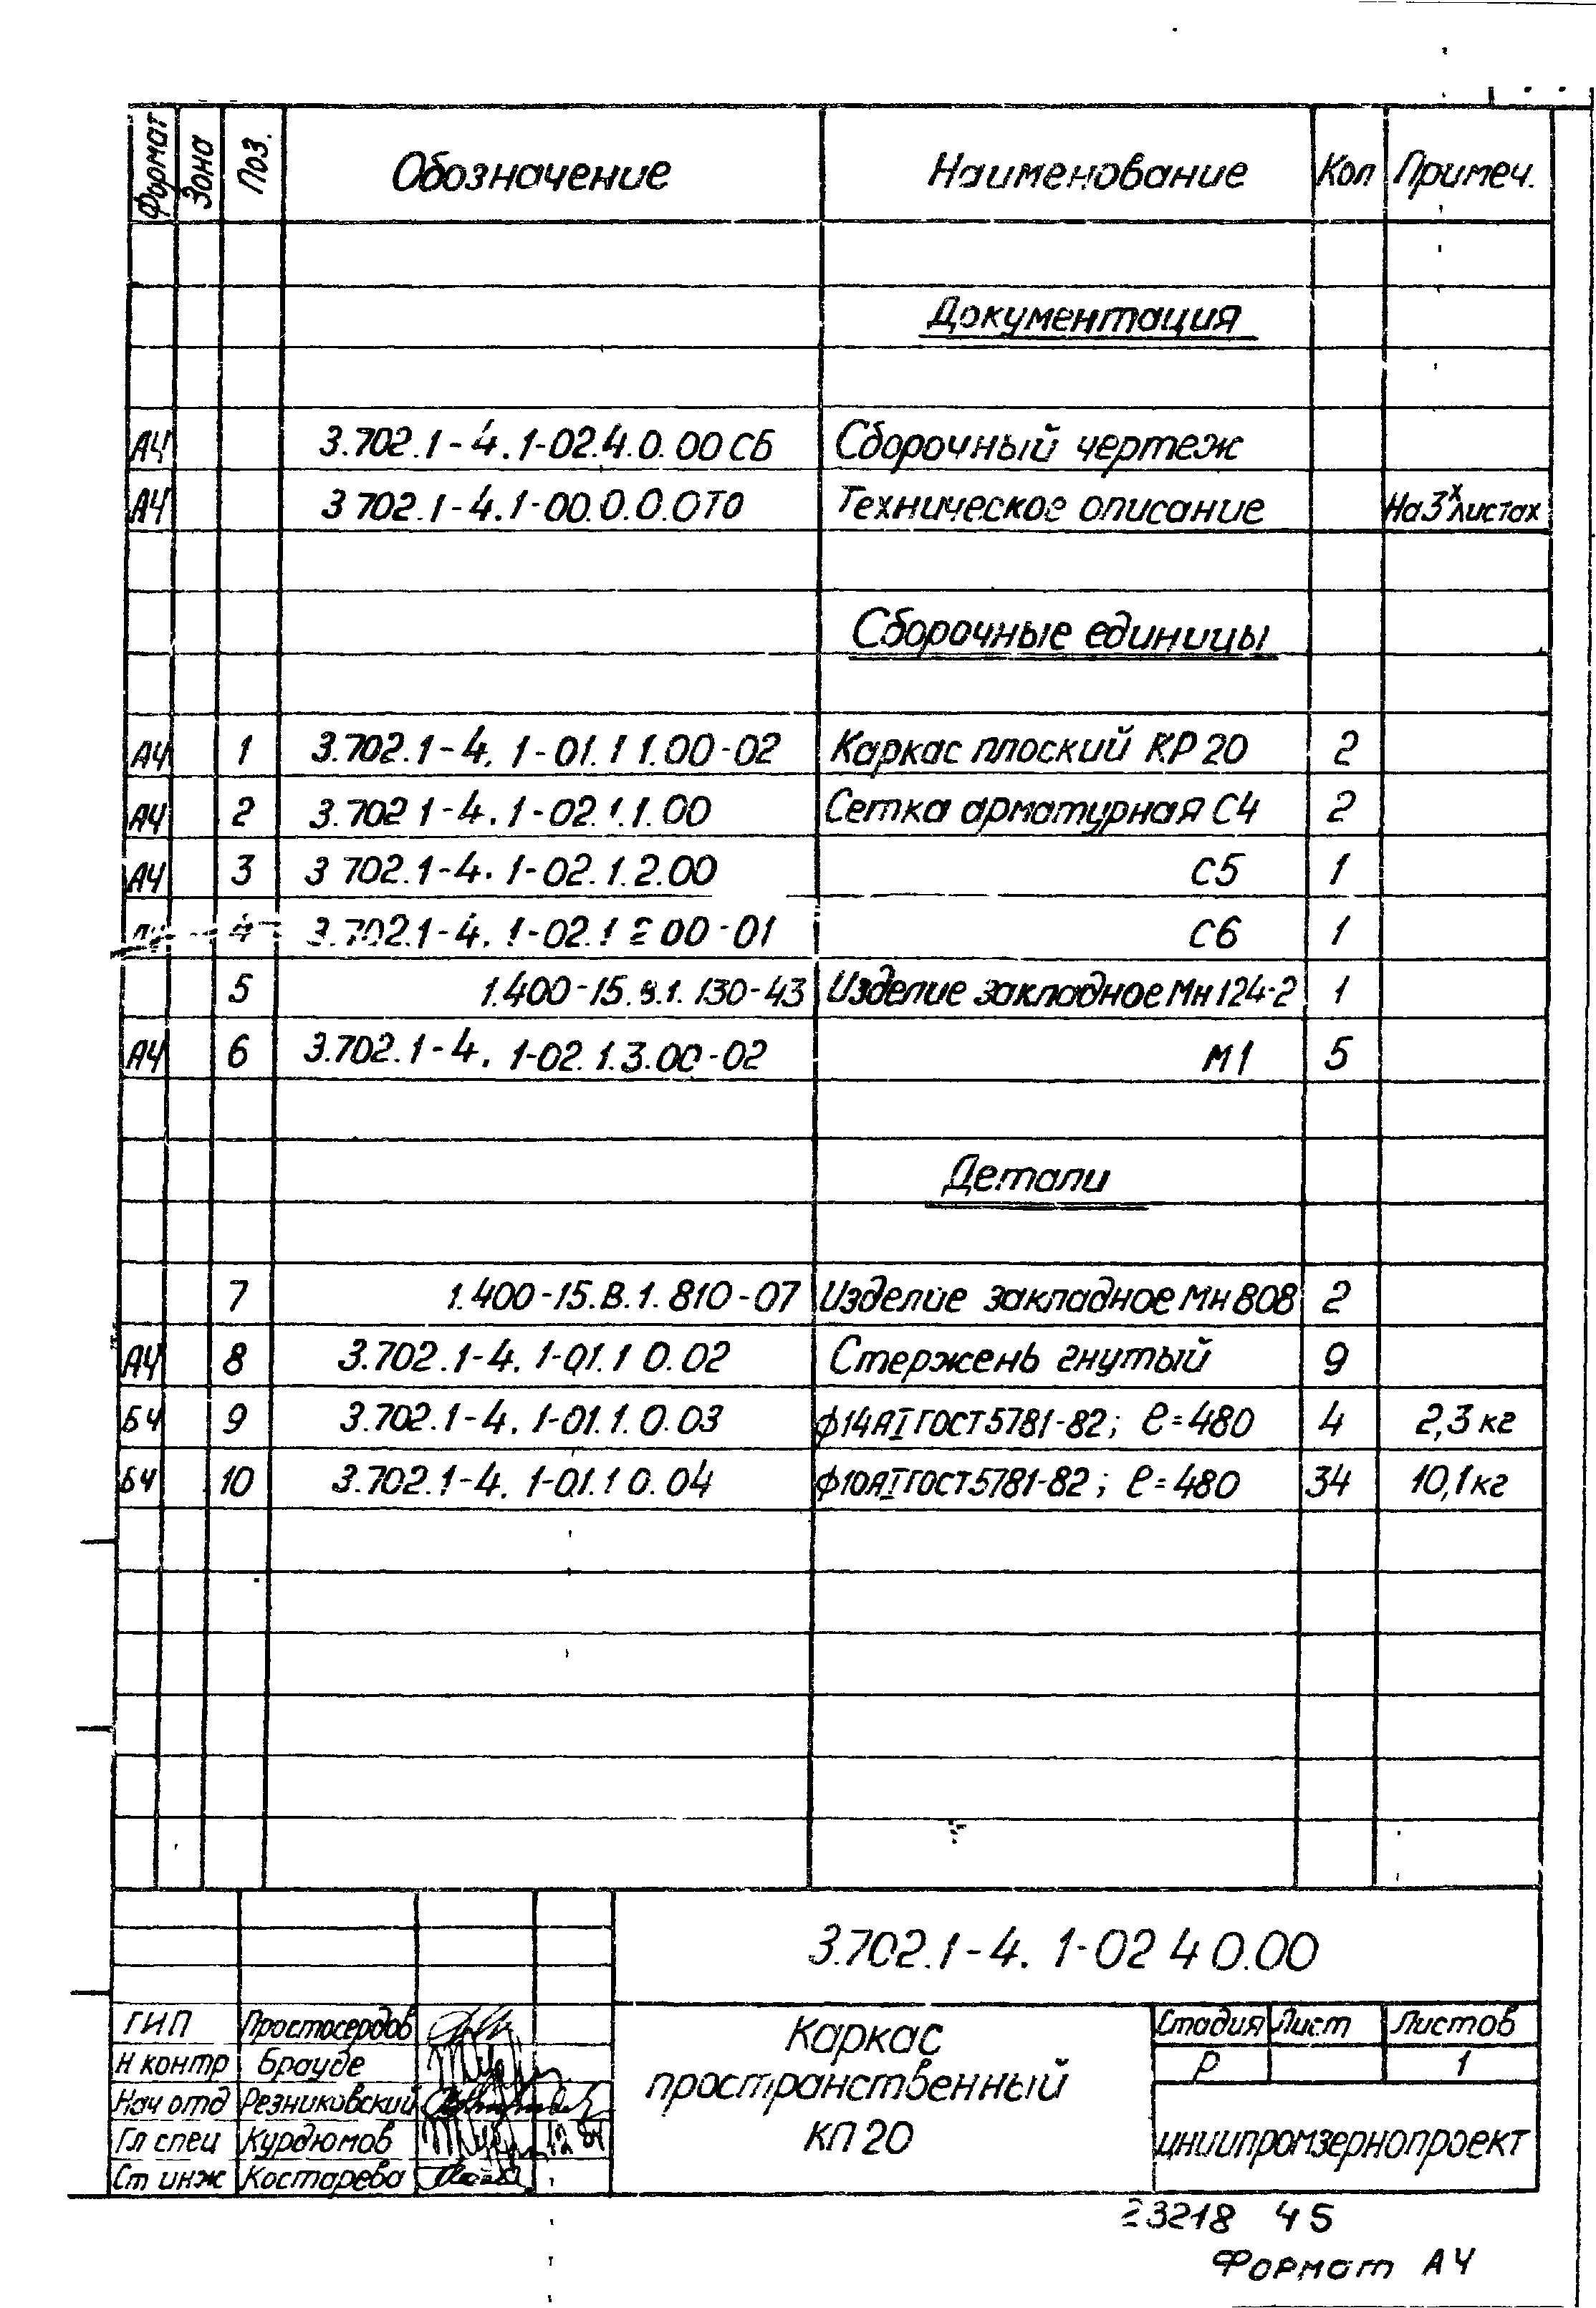 Формат Зона Поз. Обозначение Наименование Кол Примеч.
Документация
А4 3.702.1-4.1-02.4.0.00СБ Сборочный чертеж
А4 3 702.1-4.1-00.0.0.0ТО Техническое описание На 3х листах
Сборочные единицы
А4 1 3.702.1-4. 1-01.1 1.00-02 Каркас плоский КР 20 2
А4 2 3.702 1-4. 1-02.1.1.00 Сетка арматурная С4 2
А4 3 3 702.1-4. 1-02.1.2.00 С5 1
4 3.702.1-4. 1-02.1 2 00-01 С6 1
5 1.400-15.В.1. 130-43 Изделие закладное Мн 124-2 1
А4 6 3.702.1-4. 1-02.1.3.00-02 М1 5
Детали
7 1.400-15.В.1. 810-07 Изделие закладное Мн 808 2
А4 8 3.702.1-4. 1-01.1 0.02 Стержень гнутый 9
БЧ 9 3.702.1-4. 1-01.1.0.03 ф14АI ГОСТ 5781-82; ℓ=480 4 2,3 кг
БЧ 10 3.702.1-4. 1-01.1 0.04 ф10АI ГОСТ 5781-82; ℓ=480 34 10,1 кг
3.702.1-4. 1-02 4 0.00
ГИП Простосердов
Н контр Брауде
Нач отд Резниковский
Гл спец Курдюмов 12 84
Ст инж Костарева
Каркас
пространственный
КП 20
Стадия Лист Листов
Р 1
ЦНИИПРОМЗЕРНОПРОЕКТ
23218 45
Формат А4